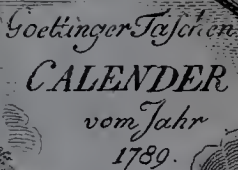 Goettinger Taschen
CALENDER
vom Jahr
1789.